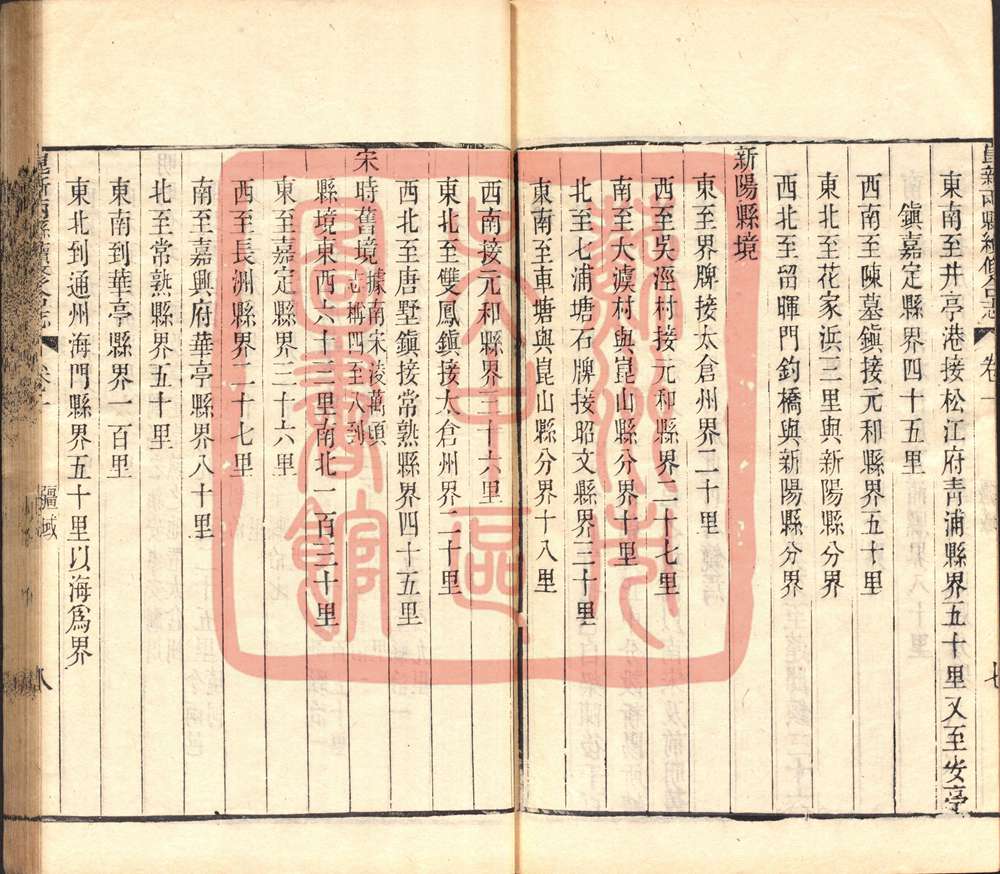 崑新兩縣續修合志 卷一 七
東南至井亭港接松江府青浦縣界五十里又至安亭
鎭嘉定縣界四十五里
西南至陳墓鎭接元和縣界五十里
東北至花家浜三里與新陽縣分界
西北至留暉門釣橋與新陽縣分界
新陽縣境
東至界牌接太倉州界二十里
西至吳涇村接元和縣界二十七里
南至大漊村與崑山縣分界十里
北至七浦塘石牌接昭文縣界三十里
東南至車塘與崑山縣分界十八里
西南接元和縣界三十六里
東北至雙鳳鎭接太倉州界二十里
西北至唐墅鎭接常熟縣界四十五里
宋時舊境據南宋淩萬頃志稱四至八到
縣境東西六十三里南北一百三十里
東至嘉定縣界三十六里
西至長洲縣界二十七里
南至嘉興府華亭縣界八十里
北至常熟縣界五十里
東南到華亭縣界一百里
東北到通州海門縣界五十里以海爲界
崑新兩縣續修合志 卷一 疆域 八
蘇州市
吳中區
圖書館